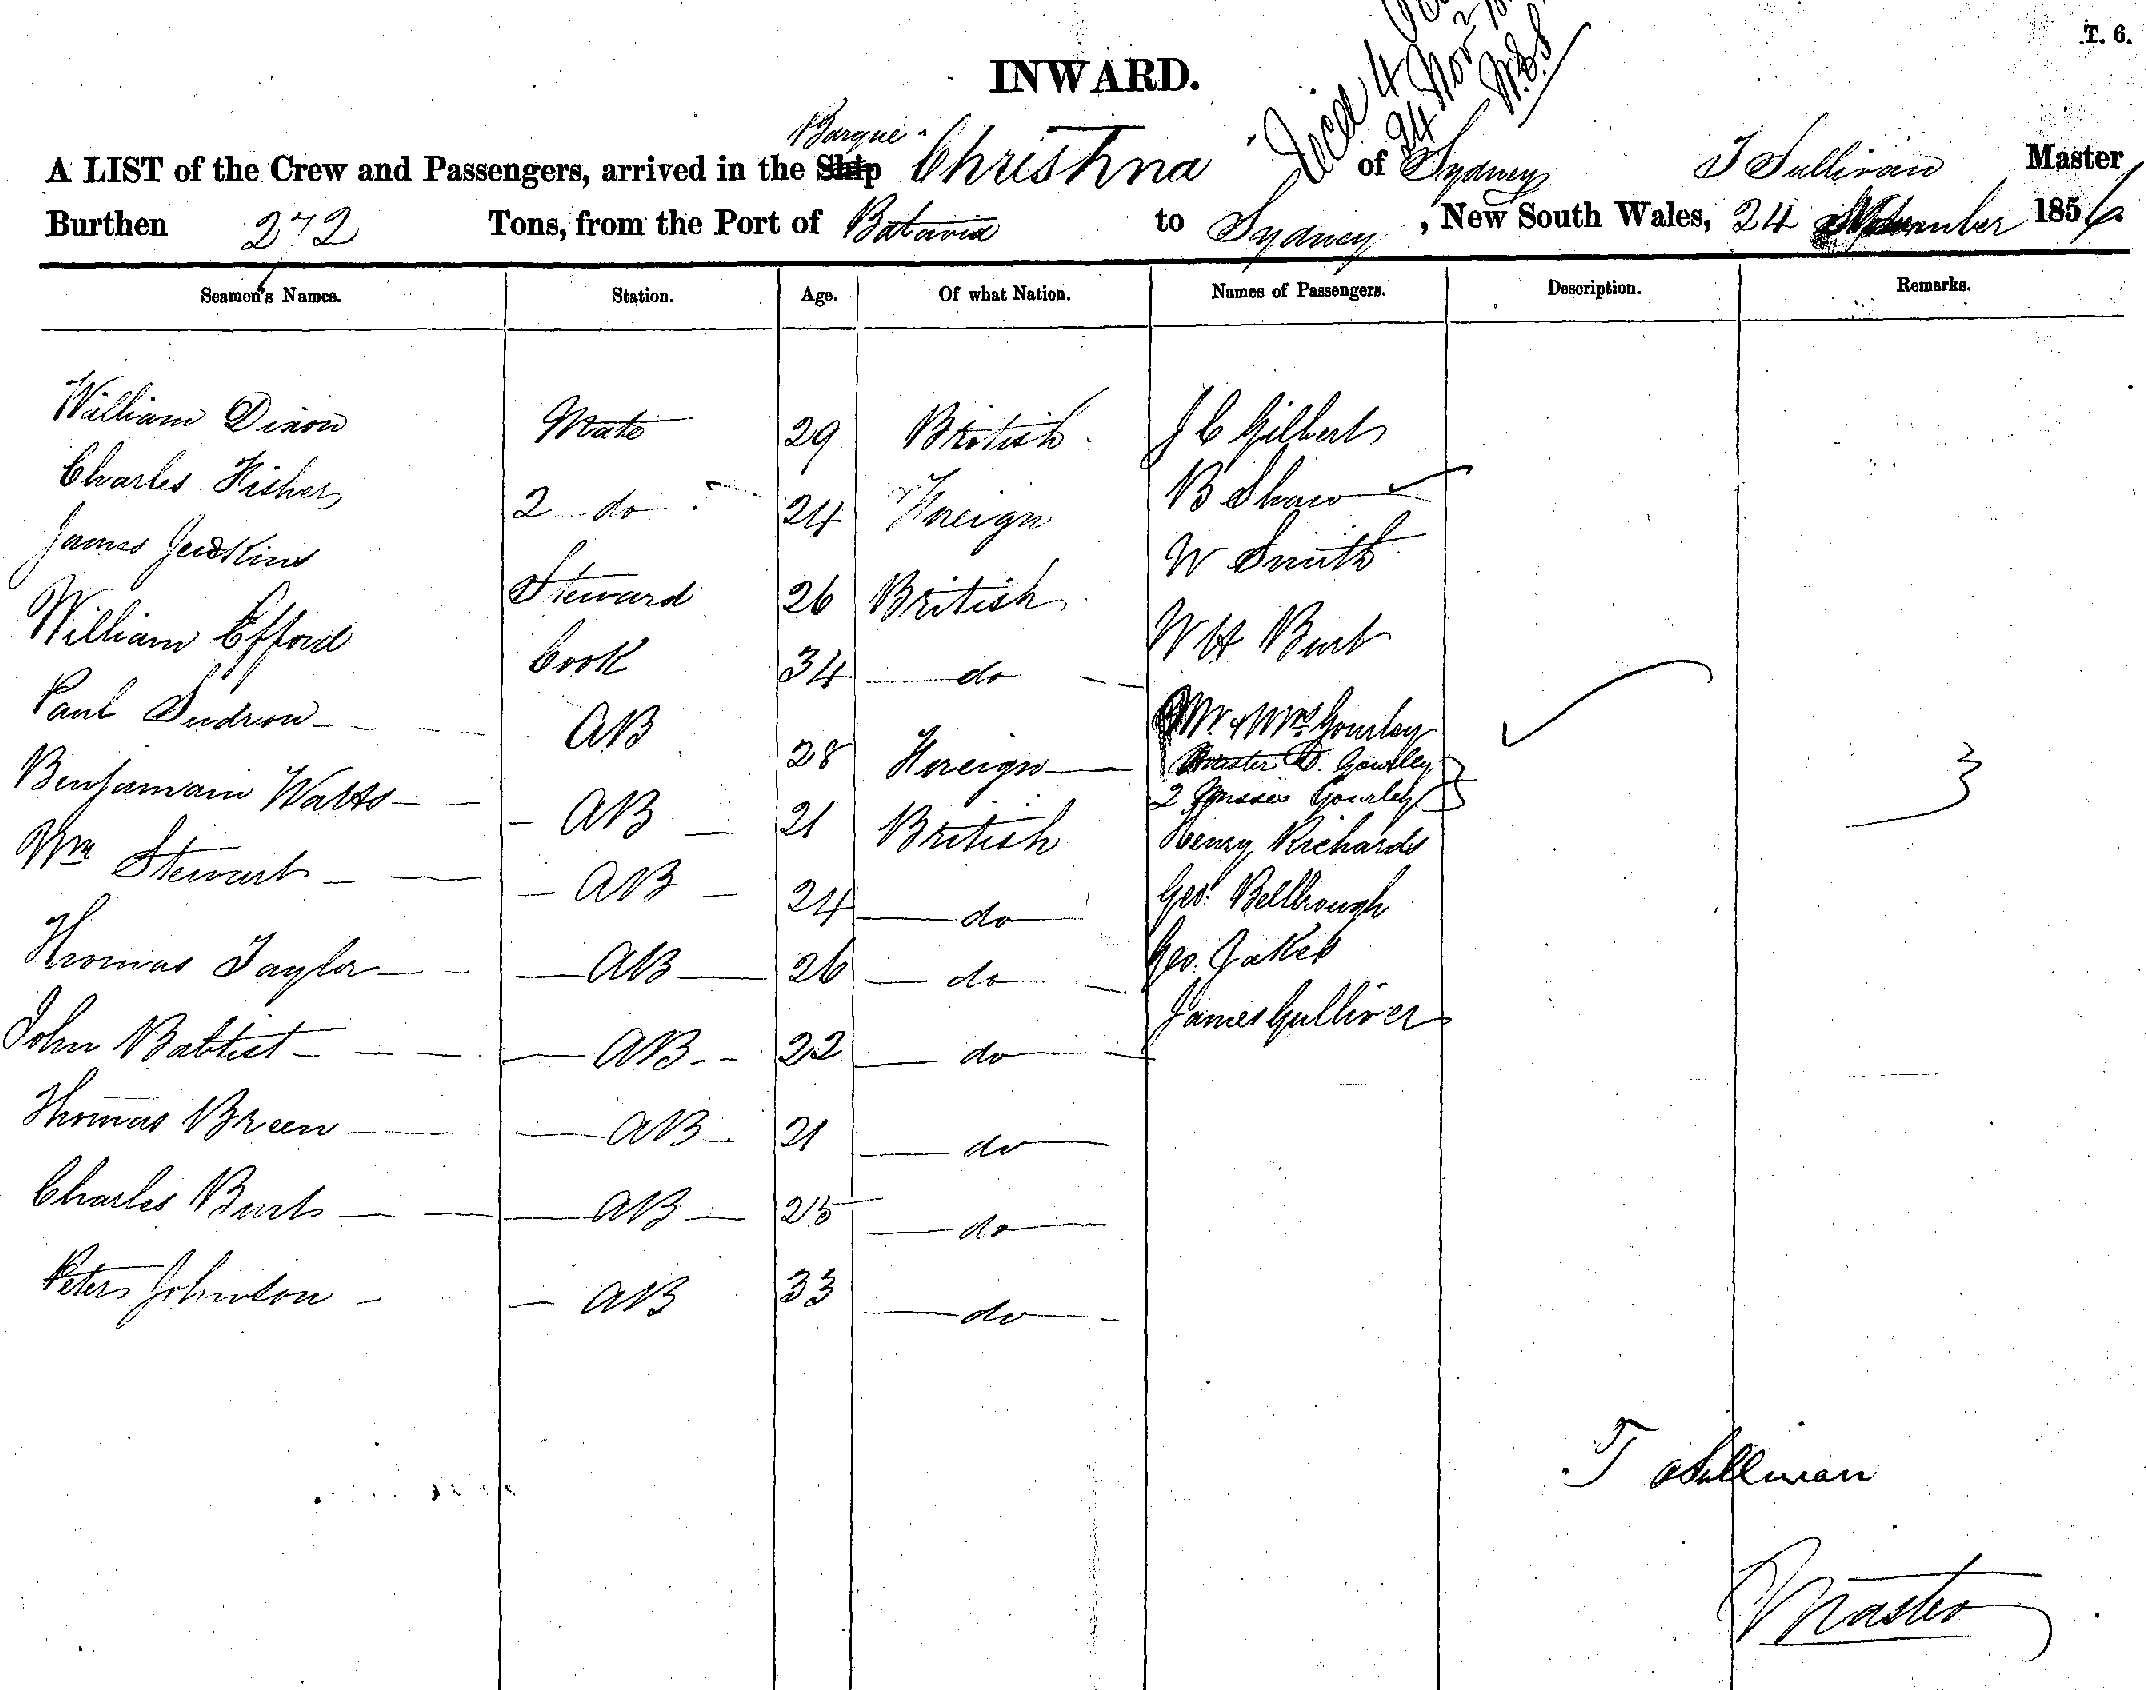 T. 6.
INWARD.
24 Nov
Barque
A LIST of the Crew and Passengers, arrived in the Ship "Christina" of Sydney J Sullivan Master
Burthen 272 Tons, from the Port of Batavia to Sydney, New South Wales, 24 November 1856
Seamen's Names. Station. Age. Of what Nation. Names of Passengers. Description. Remarks.
William Dixon Mate 29 British J C Gilbert
Charles Fisher 2 do 24 Foreign B Shaw
James Jenkins Steward 26 British W Smith
William Efford Cook 34 do W H Burt
Paul AB 28 Foreign Mr & Mrs Gourley
Master D. Gourley
2 Misses Gourley
Benjamain Watts AB 21 British Henry Richards
Wm Stewart AB 24 do Geo. Bellbrough
Thomas Taylor AB 26 do Geo. Jakes
John Babtist AB 22 do James Gulliver
Thomas Breen AB 21 do
Charles Burt AB 25 do
Peter Johnson AB 33 do
T Sullivan
Master